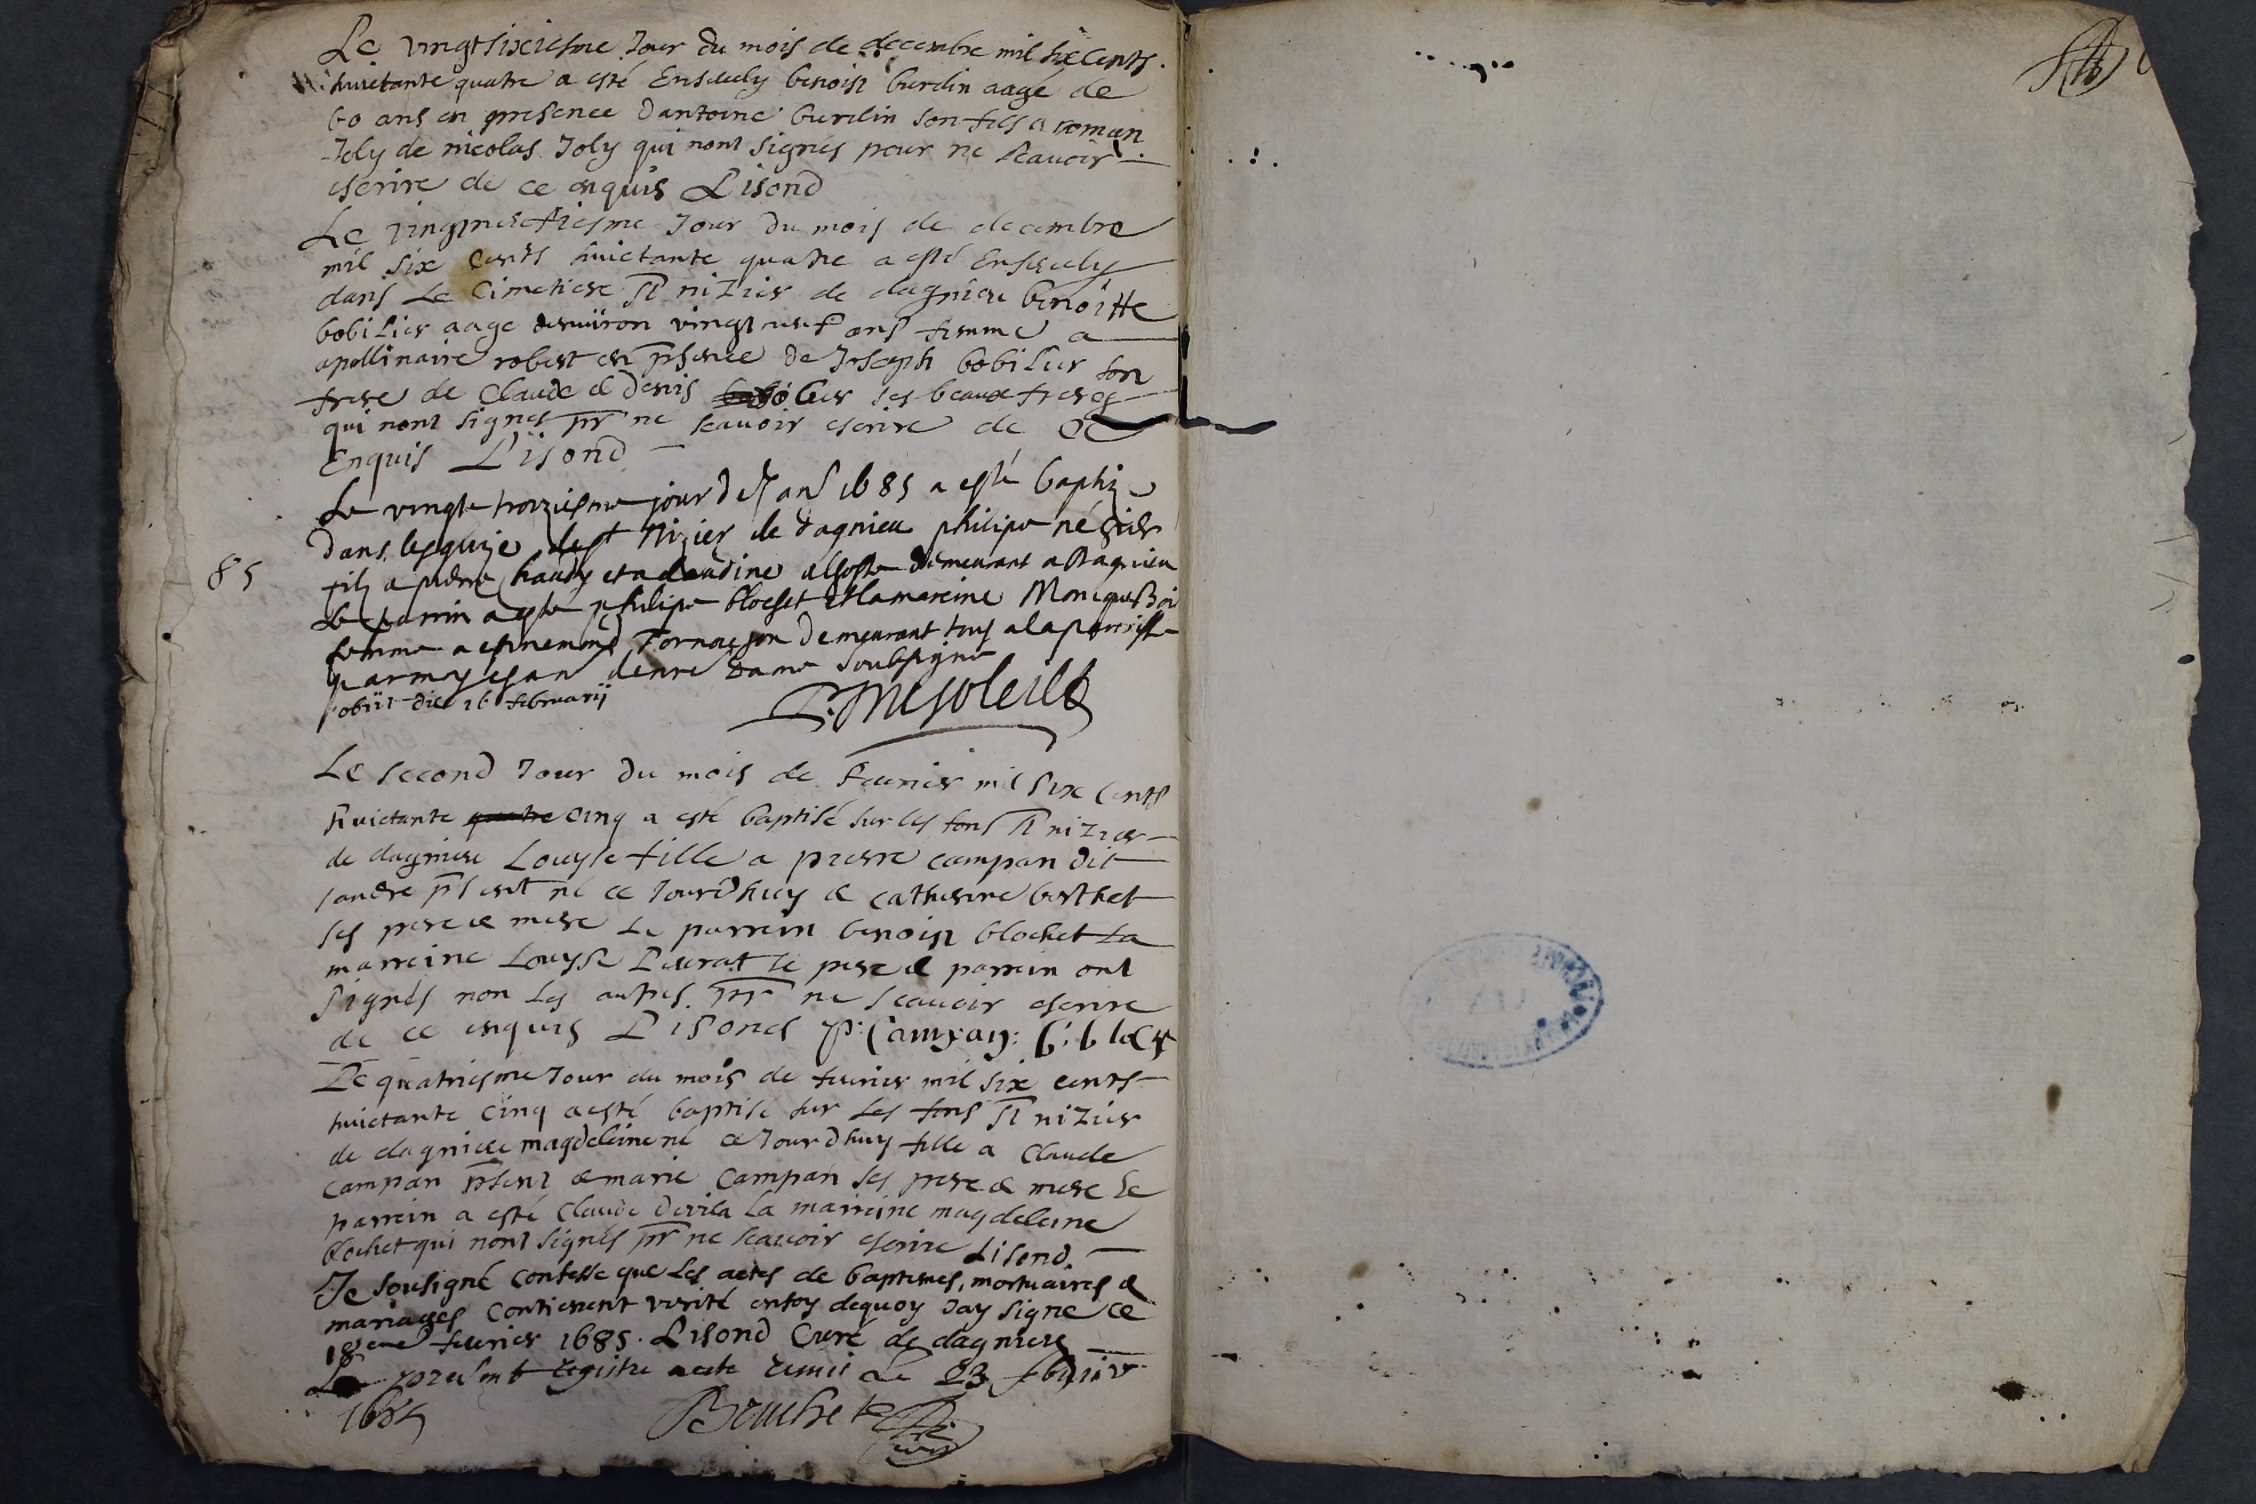 Le vingtsixiesme Jour du mois de decembre mil six Cents
huictante quatre a esté Ensevely benoist burdin aagé de
60 ans en presence dantoine burdin son fils & roman
Joly de nicolas Joly qui nont signés pour ne scavoir
escrire de ce enquis Lisond
Le vingtneufviesme Jour du mois de decembre
mil six Cents huictante quatre a esté Ensevely
dans Le Cimetiere st nizier de dagnieu benoitte
bobilier aage denviron vingt neuf ans femme a
apollinaire robert en psence de Joseph bobilier son
frere de Claude & denis ses beaux freres
qui nont signes pr ne scavoir escrire de ce
Enquis Lisond
Le vingte troiziesme jour de Jan 1685 a esté baptize
dans lesglize de st Nizier de dagnieu philipe né
fils a pierre et a claudine demeurant a Dagnieu
Le parrin a este philipe blochet et la mareine Monique
femme a demeurant tous a la parroisse
par moy soubsigne
obiit die 16 februarij
85
Le second Jour du mois de fevrier mil six Cents
huictante cinq a esté baptisé sur les fons st nizier
de dagnieu Louyse fille a pierre campan dit
psent né ce Jourdhuy & catherine berthet
ses pere & mere Le parrein benoist blochet La
marreine Louyse le pere & parrein ont
signés non les autres pr ne scavoir escrire
de ce enquis Lisond P. Campan: b: bloch
Le quatriesme Jour du mois de fevrier mil six cents
huictante cinq a esté baptisé sur les fons st nizier
de dagnieu magdeleine né ce Jourdhuy fille a Claude
campan psent & marie Campan ses pere & mere Le
parrein a esté Claude La marreine magdeleine
blochet qui nont signés pr ne scavoir escrire Lisond
Je sousigné Confesse que Les actes de baptemes, mortuaires &
mariages Contienent verité en foy dequoy Jay signé ce
18eme fevrier 1685. Lisond Curé de dagnieu
Le present registre a este remis Le 23 febvrier
1685